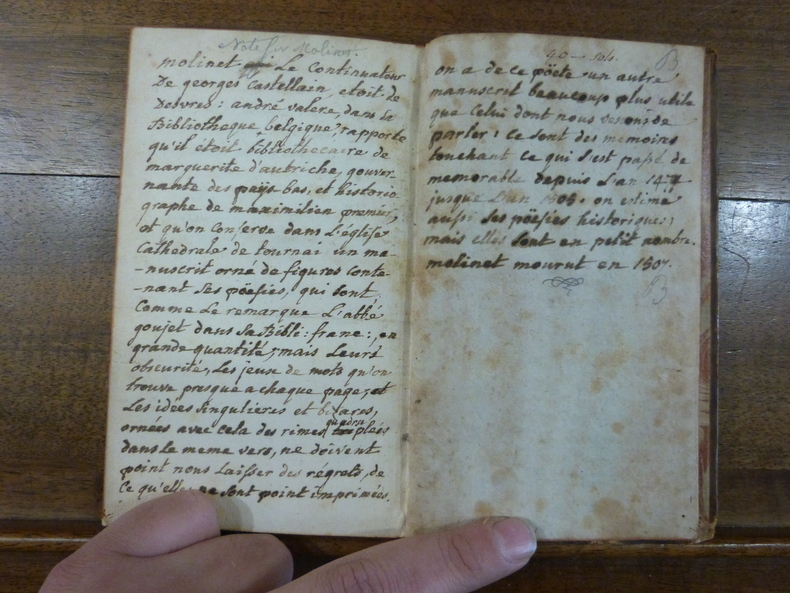 Note sur Molinet.
molinet Le Continuateur
De georges Castellain, etoit de
Desvres: andré valere, dans la
Bibliotheque belgique, rapporte
qu'il étoit bibliothecaire de
marguerite d'autriche, gouver-
nante des païs bas, et historio
graphe de maximilien premier,
et qu'on conserve dans L'église
Cathedrale de tournai un ma-
-nuscrit orné de figures conte-
-nant ses pöesies, qui sont,
Comme Le remarque L'abbé
goujet dans sa Bibli: franc:, en
grande quantité; mais Leurs
obscurité, Les jeux de mots qu'on
trouve presque a chaque page, et
Les idées singulieres et bizares,
ornées avec cela des rimes quadru
plées
dans le meme vers, ne doivent
point nous Laisser des régrets, de
ce qu'elles ne sont point imprimées.
40 - sols.
B
on a de ce pöete un autre
manuscrit beaucoup plus utile
que celui dont nous venons de
parler: ce sont des memoires
touchant ce qui s'est passé de
memorable depuis L'an
jusque L'an 1505. on estime
aussi ses pöesies historiques;
mais elles sont en petit nombre.
molinet mourut en 1507.
B